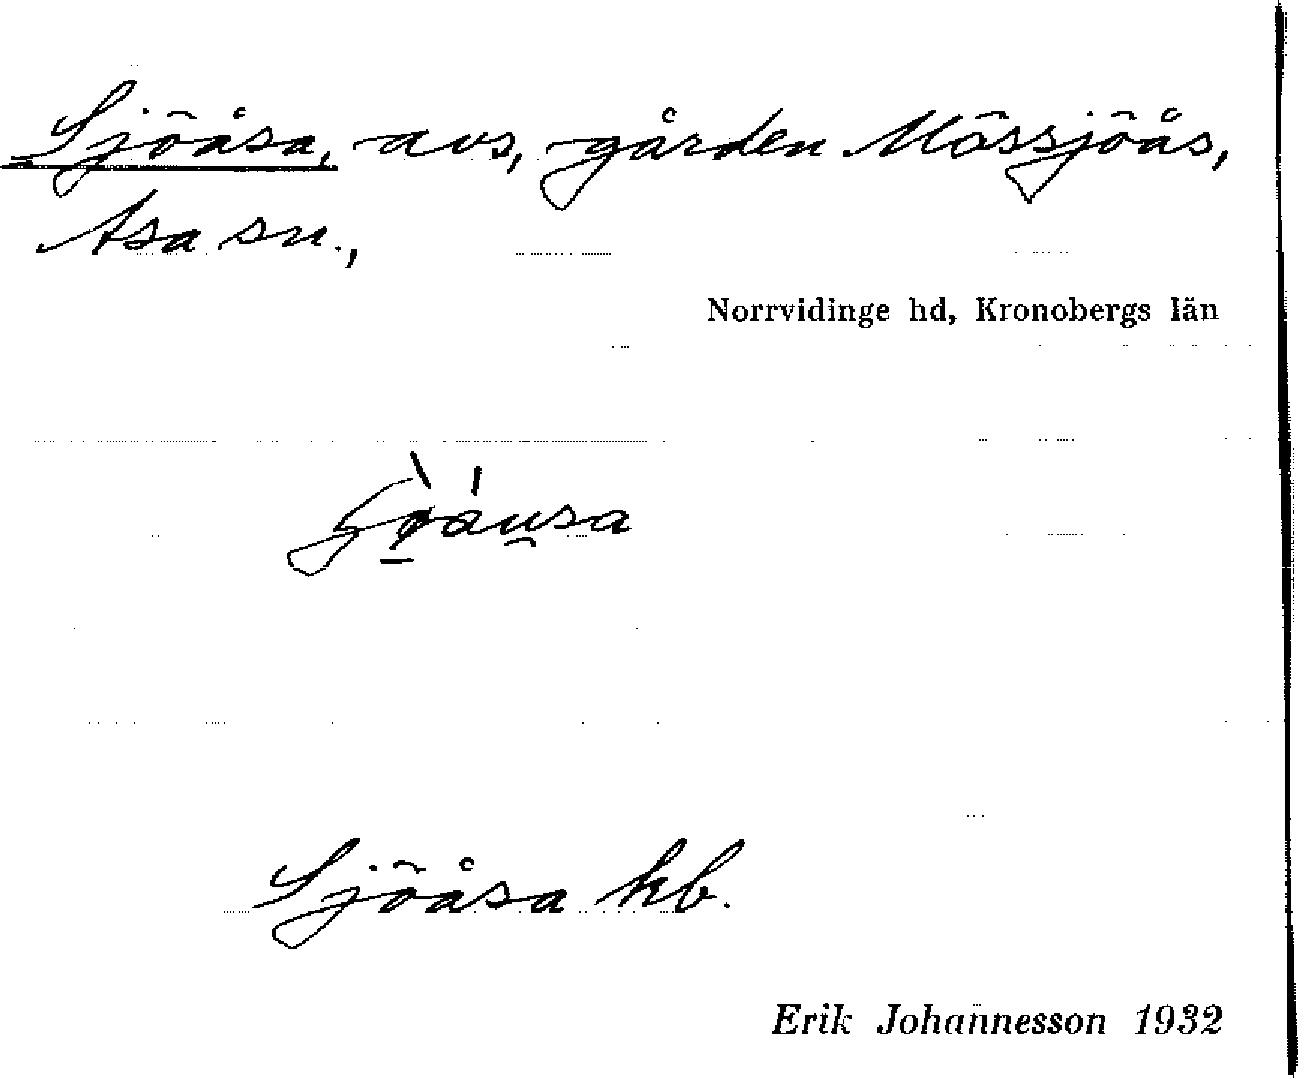 Sjöåsa, avs, gården Mössjöås,
Asa sn.,
Norrvidinge hd, Kronobergs län
Sjöåsa kb.
Erik Johannesson 1932